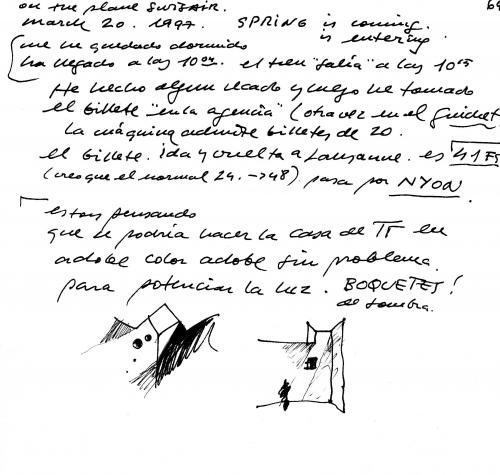 on the plane Swissair. 64
march 20. 1997. SPRING is coming.
is entering.
me he quedado dormido
ha llegado a las 10 00. el tren "salía" a las 10 15
He hecho algun recado y luego he tomado
el billete "en la agencia" (otra vez en el Guichet
La máquina admite billetes de 20.
el billete. ida y vuelta a Lausanne. es 41 Fs
(creo que el normal 24. → 48) pasa por NYON.
estoy pensando
que se podría hacer la casa de TT en
adobe color adobe sin problema.
para potenciar la luz. BOQUETES!
de sombra.